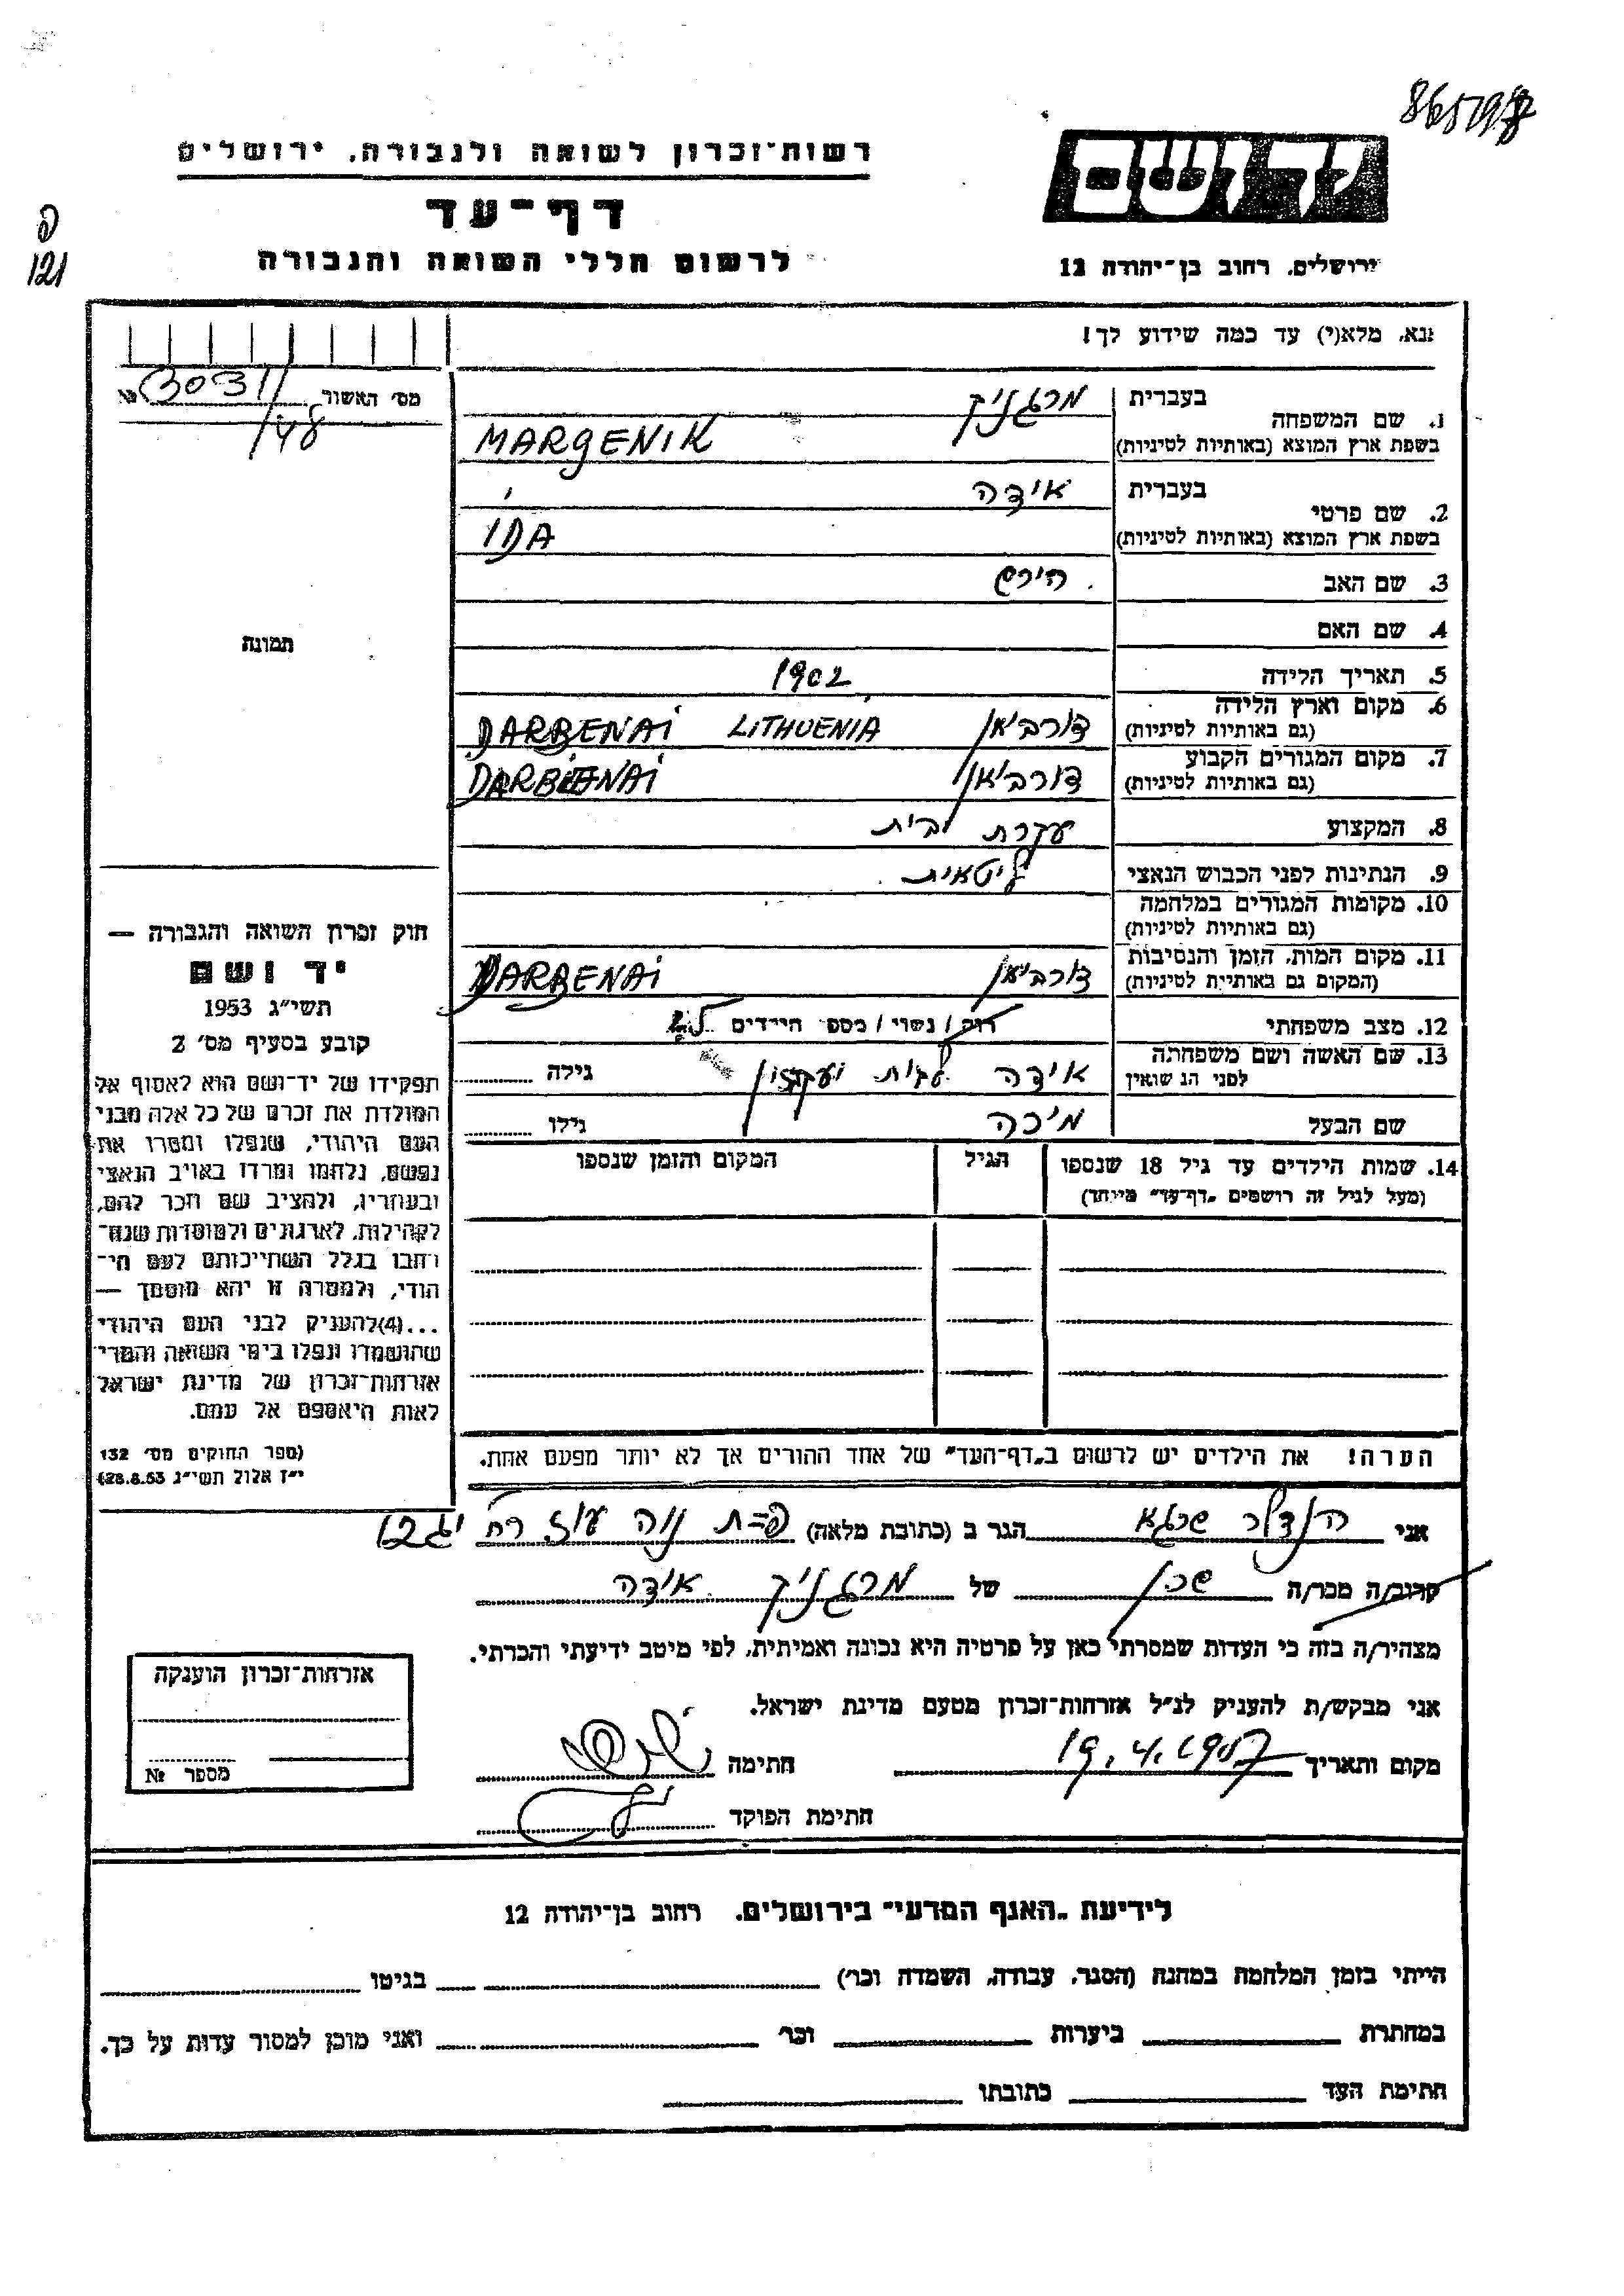 רשות־זכרון לשואה ולגבורה, ירושלים
דף־עד
לרשום חללי השואה והגבורה
יד ושם
ירושלים, רחוב בן־יהודה 12
פ
121
נא, מלא(י) עד כמה שידוע לך!
מס׳ האשור № 3031/
1. שם המשפחה בעברית מרגניק
בשפת ארץ המוצא (באותיות לטיניות) MARGENIK
2. שם פרטי בעברית אידה
בשפת ארץ המוצא (באותיות לטיניות) IDA
3. שם האב הירש
4. שם האם
5. תאריך הלידה 1902
6. מקום וארץ הלידה (גם באותיות לטיניות) דורביאן LITHUENIA DARBENAI
7. מקום המגורים הקבוע (גם באותיות לטיניות) דורביאן DARBENAI
8. המקצוע עקרת בית
9. הנתינות לפני הכבוש הנאצי ליטאית
10. מקומות המגורים במלחמה (גם באותיות לטיניות)
11. מקום המות, הזמן והנסיבות (המקום גם באותיות לטיניות) דורביאן DARBENAI
12. מצב משפחתי רוק / נשוי / מספר הילדים
13. שם האשה ושם משפחתה לפני הנשואין אידה לבית גילה
שם הבעל מיכה גילו
14. שמות הילדים עד גיל 18 שנספו הגיל המקום והזמן שנספו
(מעל לגיל זה רושמים „דף־עד״ מיוחד)
הערה! את הילדים יש לרשום ב„דף־העד״ של אחד ההורים אך לא יותר מפעם אחת.
תמונה
חוק זכרון השואה והגבורה —
יד ושם
תשי״ג 1953
קובע בסעיף מס׳ 2
תפקידו של יד־ושם הוא לאסוף אל
המולדת את זכרם של כל אלה מבני
העם היהודי, שנפלו ומסרו את
נפשם, נלחמו ומרדו באויב הנאצי
ובעוזריו, ולהציב שם וזכר להם,
לקהילות, לארגונים ולמוסדות שנח־
רבו בגלל השתייכותם לעם הי־
הודי, ולמטרה זו יהא מוסמך —
...(4) להעניק לבני העם היהודי
שהושמדו ונפלו בימי השואה והמרי
אזרחות־זכרון של מדינת ישראל
לאות היאספם אל עמם.
(ספר החוקים מס׳ 132
י״ז אלול תשי״ג 28.8.53)
אני הנדלר שרגא הגר ב (כתובת מלאה) פ״ת נוה עוז רח׳
קרוב/ה מכר/ה שכן של מרגניק אידה
מצהיר/ה בזה כי העדות שמסרתי כאן על פרטיה היא נכונה ואמיתית, לפי מיטב ידיעתי והכרתי.
אני מבקש/ת להעניק לנ״ל אזרחות־זכרון מטעם מדינת ישראל.
מקום ותאריך 19.4.1957 חתימה
חתימת הפוקד
אזרחות־זכרון הוענקה
מספר №
לידיעת „האגף המדעי״ בירושלים, רחוב בן־יהודה 12
הייתי בזמן המלחמה במחנה (הסגר, עבודה, השמדה וכר׳) בגיטו
במחתרת ביערות וכר׳ ואני מוכן למסור עדות על כך.
חתימת העד כתובתו